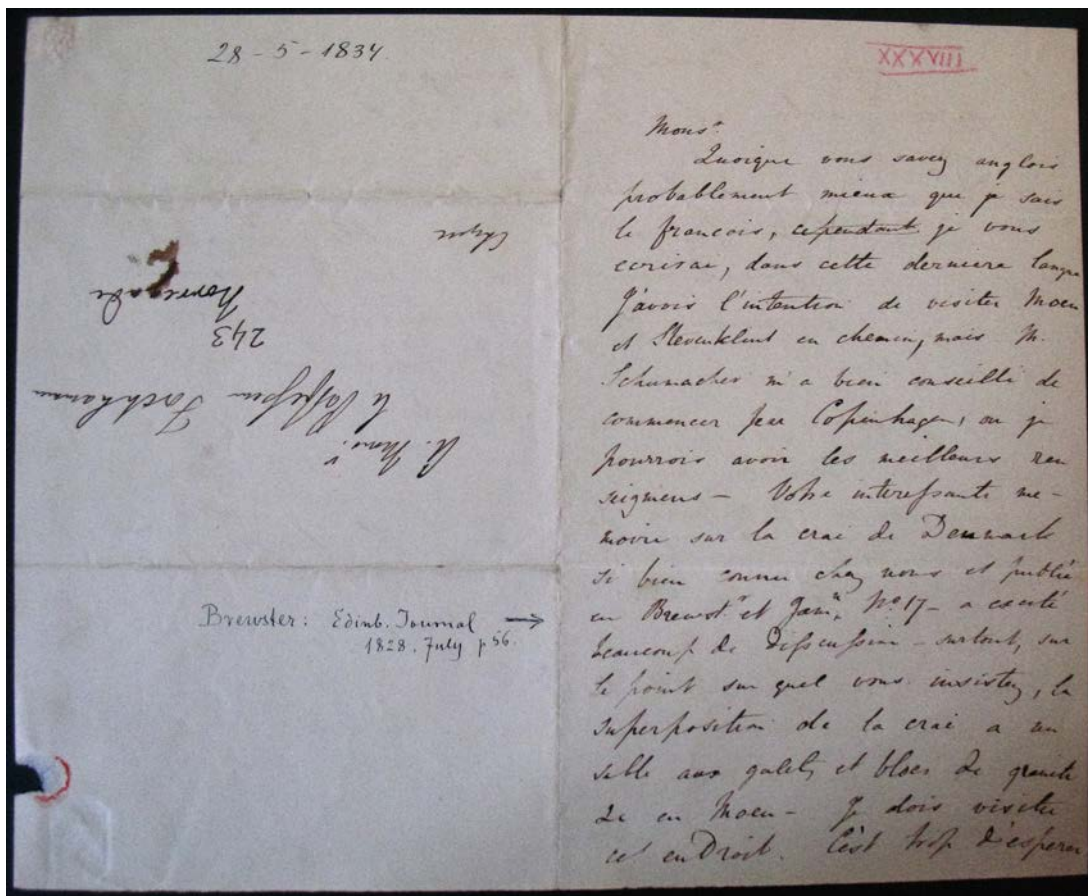 28-5-1834.
Lyell
Norregade
243
Le Professeur Forchhammer
A Monsr
Brewster: Edinb. Journal →
1828. July p 56.
XXXVIII
Monsr
Quoique vous savez anglois
probablement mieux que je sais
le francois, cependant je vous
ecrirai, dans cette derniere langue
J'avois l'intention de visiter Moen
et Stevensklint en chemin, mais M.
Schumacher m'a bien conseillé de
commencer par Copenhagen, ou je
pourrois avoir les meilleurs ren
seigmens - Votre interessante me-
moire sur la craie de Denmark
si bien connu chez nous et publié
en Brewstr et Jamn No 17 - a excité
beaucoup de discussion - surtout, sur
le point sur quel vous insistez, la
superposition de la craie a un
sable aux galets et blocs de granite
&c en Moen - Je dois visiter
cet endroit. C'est trop d'esperer